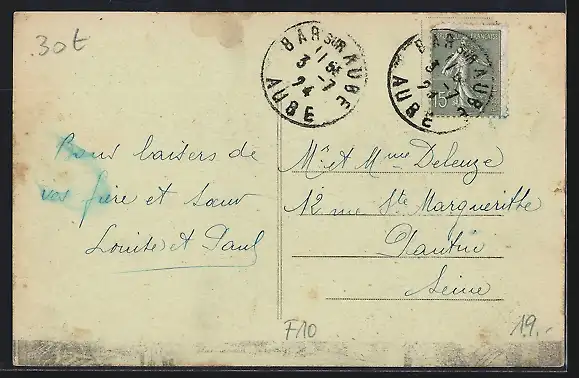 30t
BAR SUR AUBE
11 45
3 - 7
24
AUBE
BAR SUR AUBE
3 - 7
24
AUBE
FRANÇAISE
15
Bons baisers de
vos frère et sœur
Louise et Paul
Mr et Mme Deleuze
12 rue Ste Margueritte
Pantin
Seine
F10
19.-